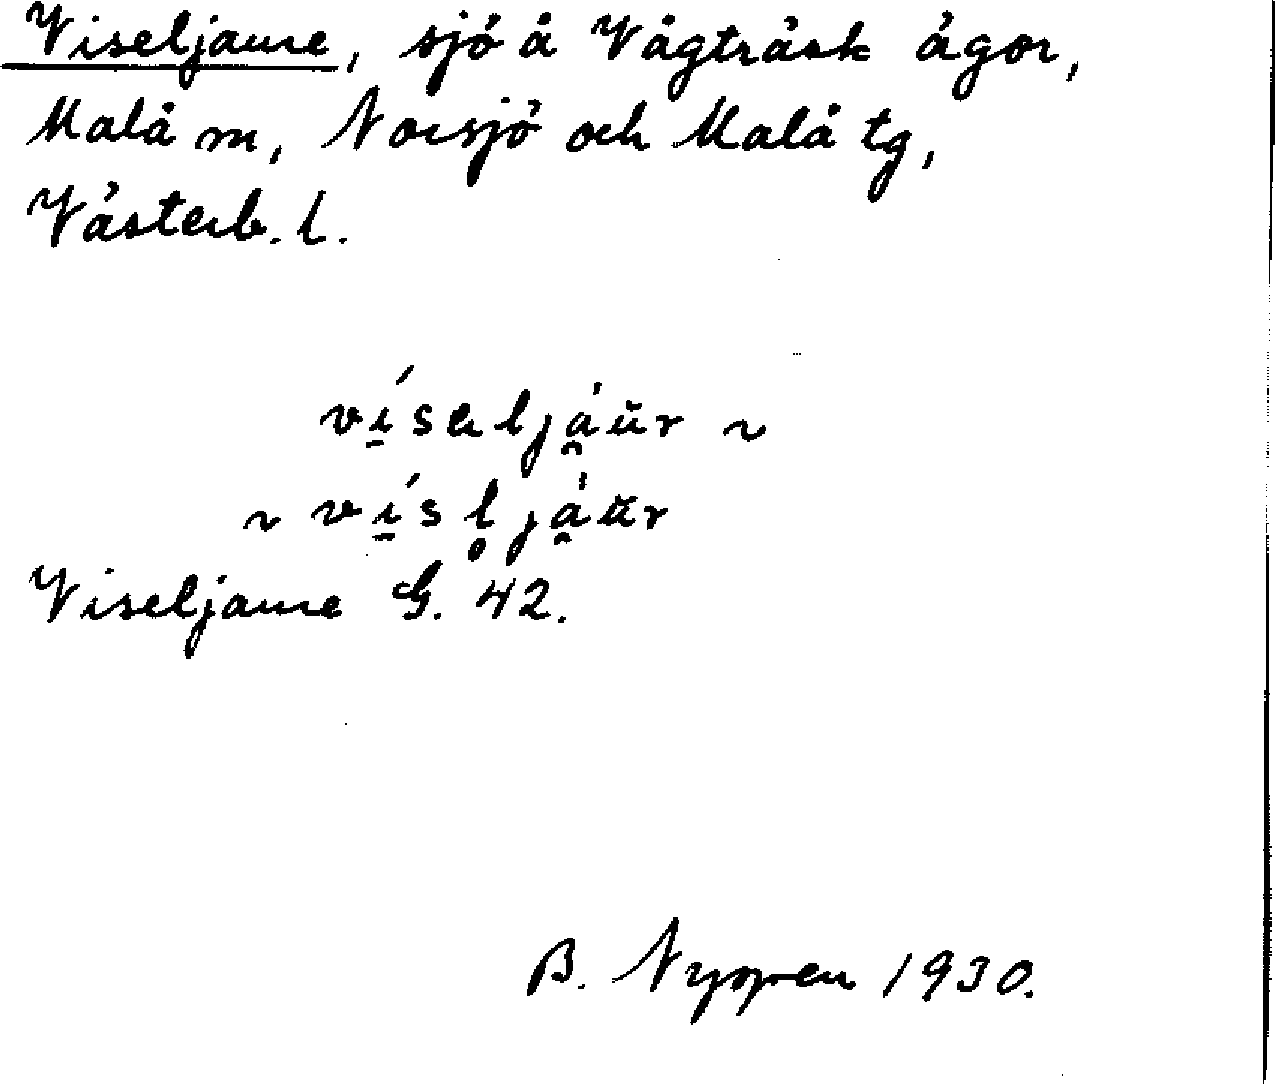 Viseljaure, sjö å Vågträsk ägor,
Malå m, Norsjö och Malå tg,
Västerb. l.
ví̱seljá̯ŭr ~
~ ví̱sl̥já̯ŭr
Viseljaure G. 42.
B. Nyppen 1930.